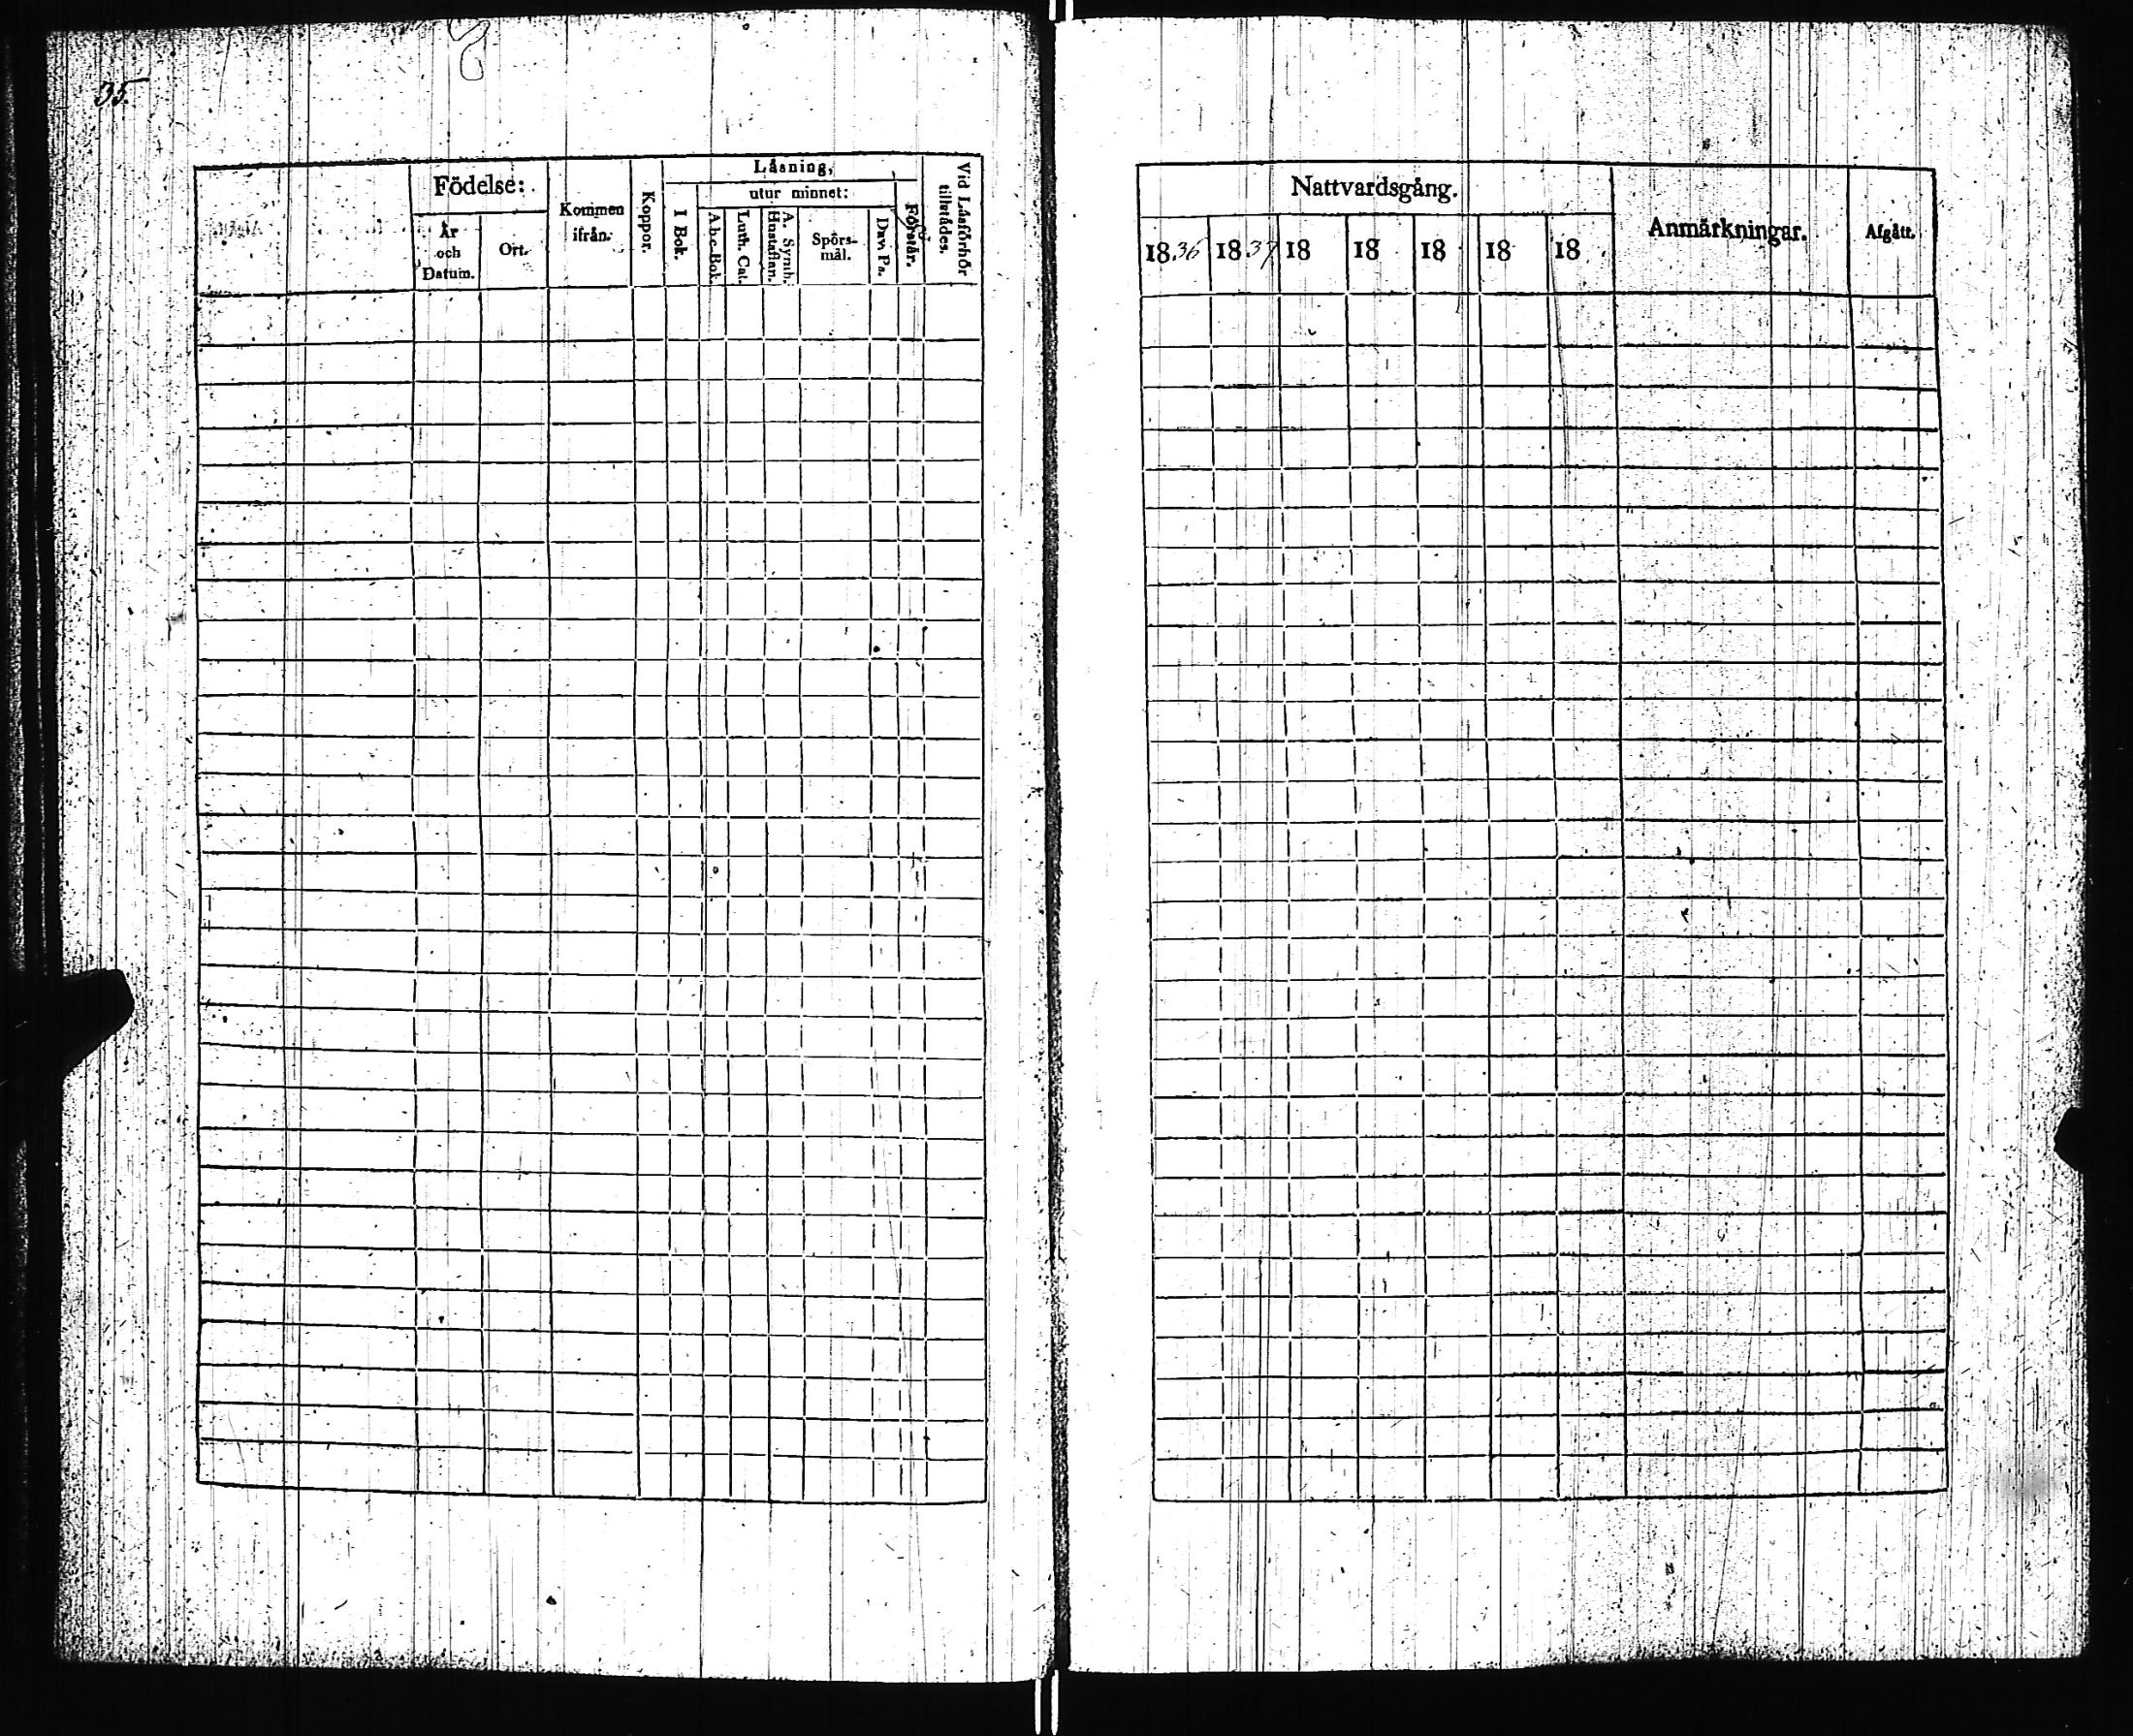 35.
Födelse:
År och Datum.
Ort.
Kommen ifrån.
Koppor.
Läsning,
I Bok.
utur minnet:
A.b.c.Bok.
Luth. Cat.
A. Symb. Hustaflan.
Spörsmål.
Dav. Ps.
Förstår.
Vid Läsförhör tillstådes.
Nattvardsgång.
1836 1837 18 18 18 18 18
Anmärkningar.
Afgått.